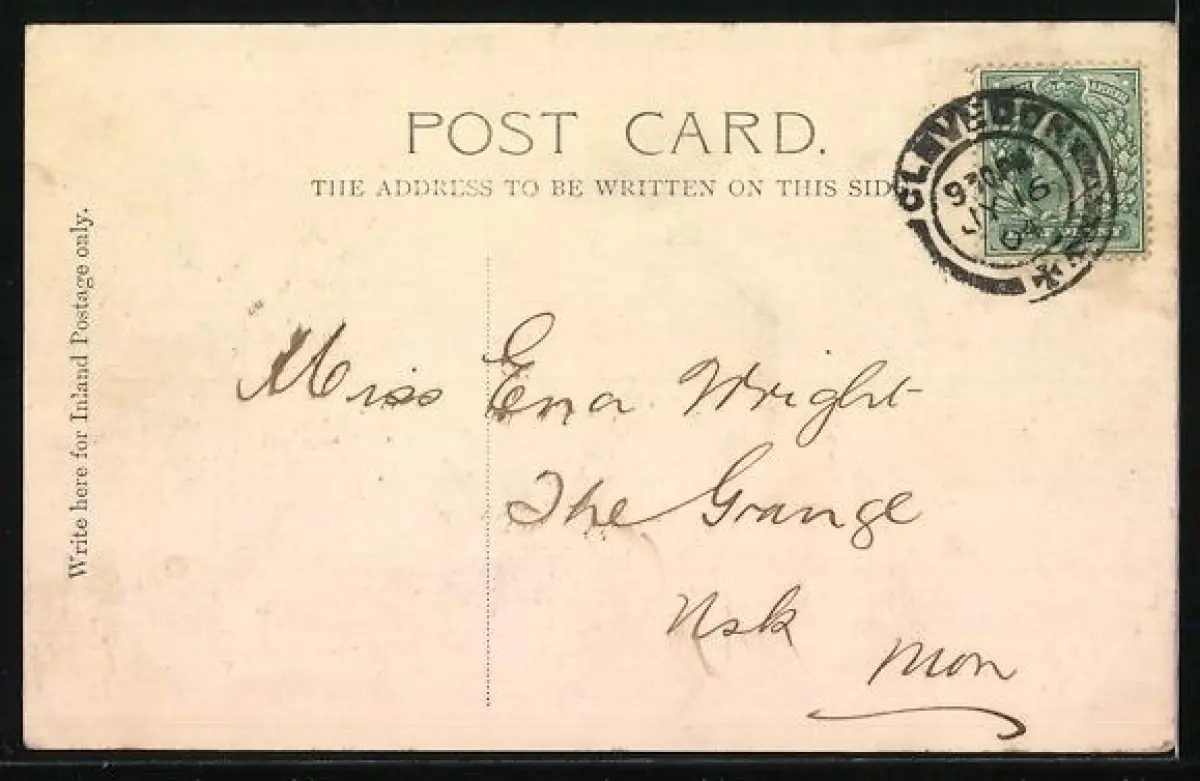 POST CARD.
THE ADDRESS TO BE WRITTEN ON THIS SIDE
Write here for Inland Postage only.
CLEVEDON
9 30 PM
JY 16
04
HALFPENNY
Miss Ena Wright
The Grange
Usk
Mon